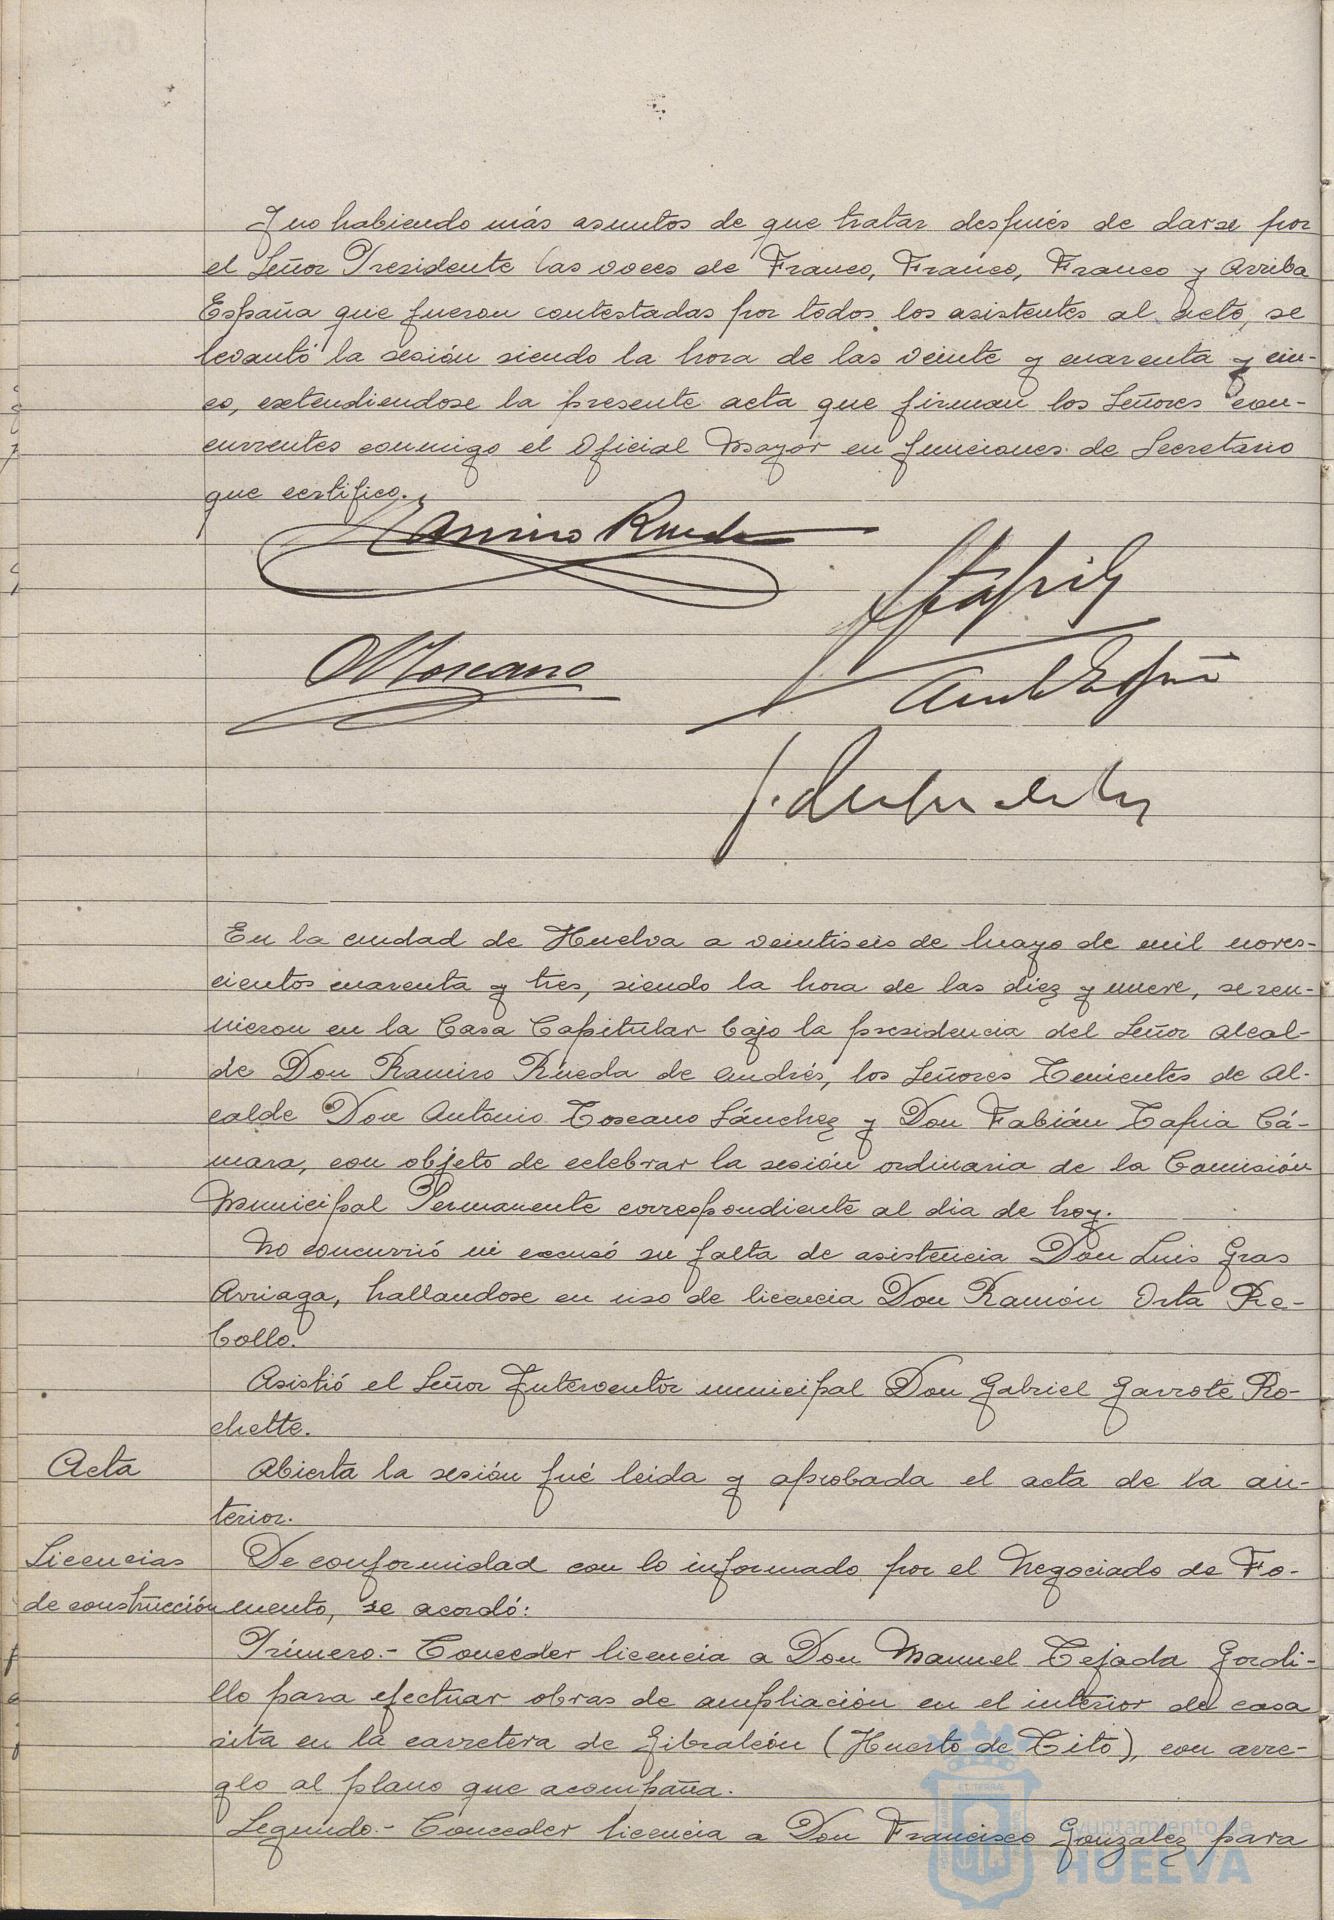 Y no habiendo más asuntos de que tratar después de darse por
el Señor Presidente las voces de Franco, Franco, Franco y Arriba
España que fueron contestadas por todos los asistentes al acto, se
levantó la sesión siendo la hora de las veinte y cuarenta y cin-
co, extendiendose la presente acta que firman los Señores con-
currentes conmigo el Oficial Mayor en funciones de Secretario
que certifico.
Ramiro Rueda
Tapia
Toscano
En la ciudad de Huelva a veintiseis de Mayo de mil noves-
cientos cuarenta y tres, siendo la hora de las diez y nueve, se reu-
nieron en la Casa Capitular bajo la presidencia del Señor Alcal-
de Don Ramiro Rueda de Andrés, los Señores Tenientes de Al-
calde Don Antonio Toscano Sánchez y Don Fabián Tapia Cá-
mara, con objeto de celebrar la sesión ordinaria de la Comisión
Municipal Permanente correspondiente al dia de hoy.
No concurrió ni excusó su falta de asistencia Don Luis Gras
Arriaga, hallandose en uso de licencia Don Ramón Orta Re-
bollo.
Asistió el Señor Interventor municipal Don Gabriel Garrote Ro-
chette.
Acta
Abierta la sesión fué leida y aprobada el acta de la an-
terior.
Licencias
de construcción
De conformidad con lo informado por el Negociado de Fo-
mento, se acordó:
Primero.- Conceder licencia a Don Manuel Tejada Gordi-
llo para efectuar obras de ampliación en el interior de casa
sita en la carretera de Gibraleón (Huerto de Tito), con arre-
glo al plano que acompaña.
Segundo.- Conceder licencia a Don Francisco Gonzalez para
Ayuntamiento de
HUELVA